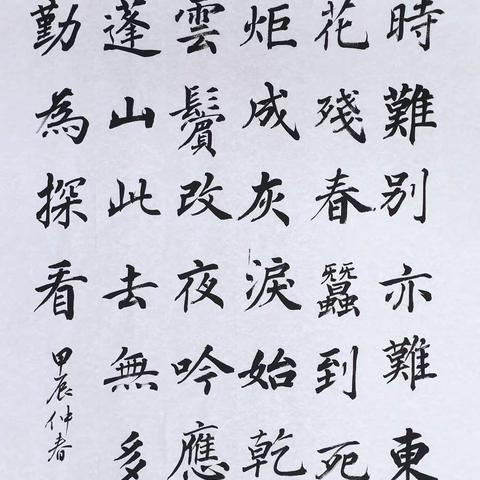 時難別亦難東
花殘春蠶到死
炬成灰淚始乾
雲鬢改夜吟應
蓬山此去無多
勤為探看
甲辰仲春